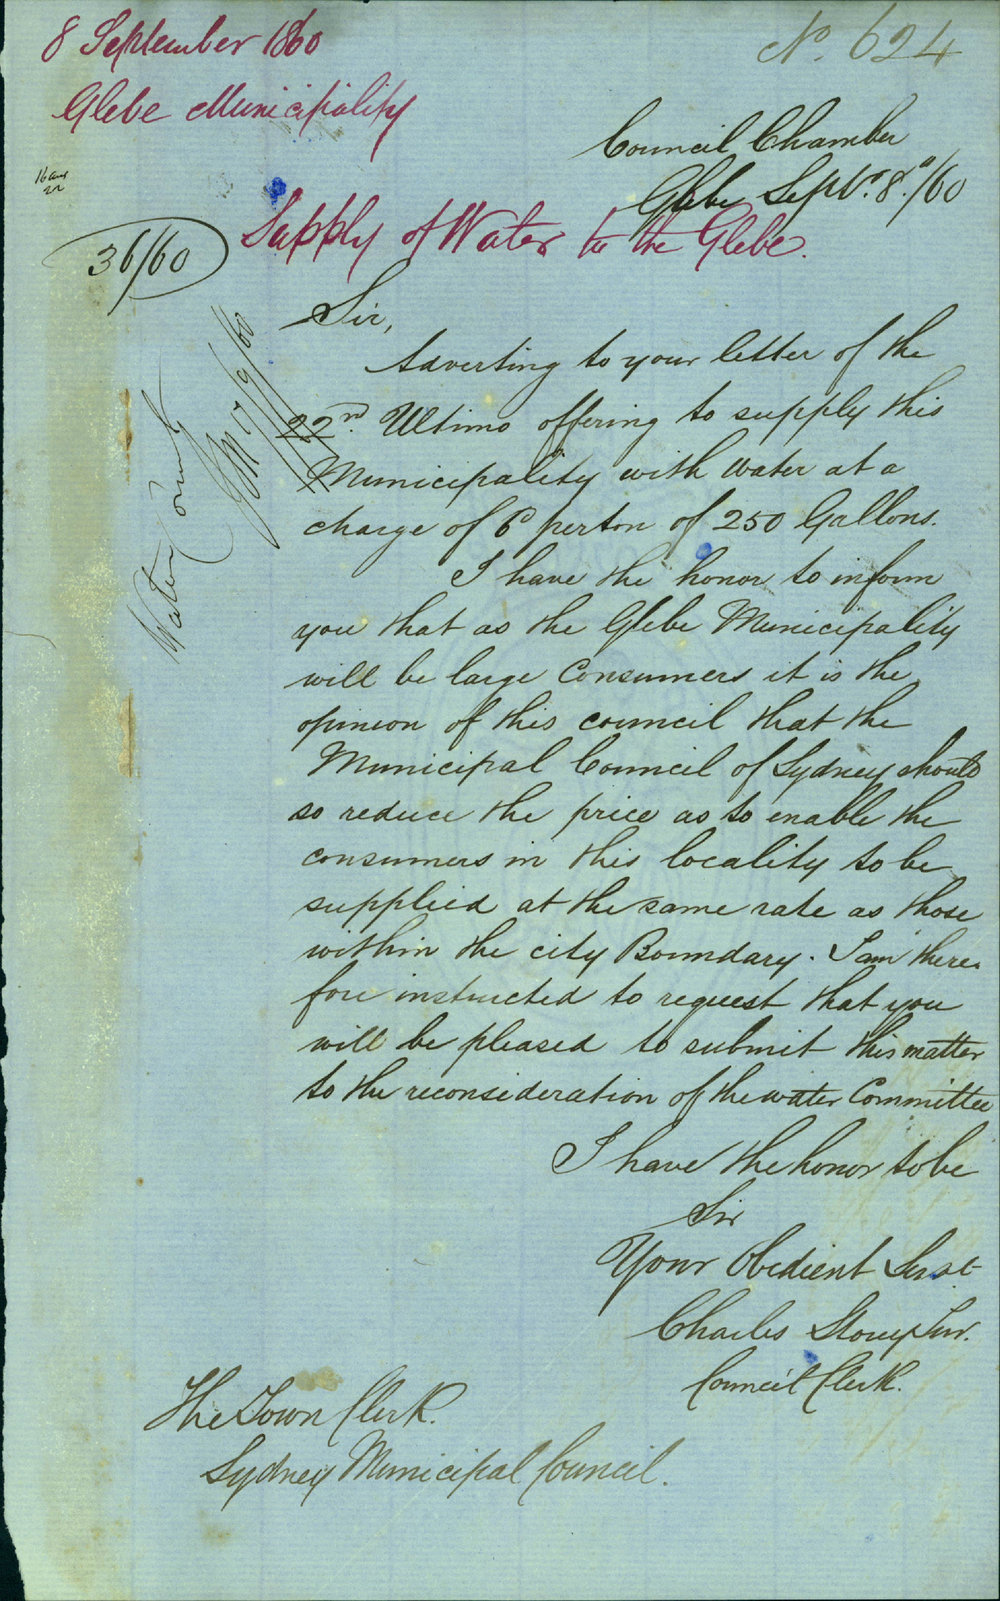 8 September 1860
Glebe Municipality
No. 624
Council Chamber
Glebe Sept. 8./60
16 aug
22
Supply of Water to the Glebe.
36/60
Water Comee
17/9/60
Sir,
Adverting to your letter of the
22nd. Ultimo offering to supply this
Municipality with water at a
charge of 6d per ton of 250 Gallons.
I have the honor to inform
you that as the Glebe Municipality
will be large Consumers it is the
opinion of this council that the
Municipal Council of Sydney should
so reduce the price as to enable the
consumers in this locality to be
supplied at the same rate as those
within the city Boundary. I am there-
fore instructed to request that you
will be pleased to submit this matter
to the reconsideration of the water Committee
I have the honor to be
Sir
Your Obedient Servt
Charles Storey Junr.
Council Clerk.
The Town Clerk.
Sydney Municipal Council.